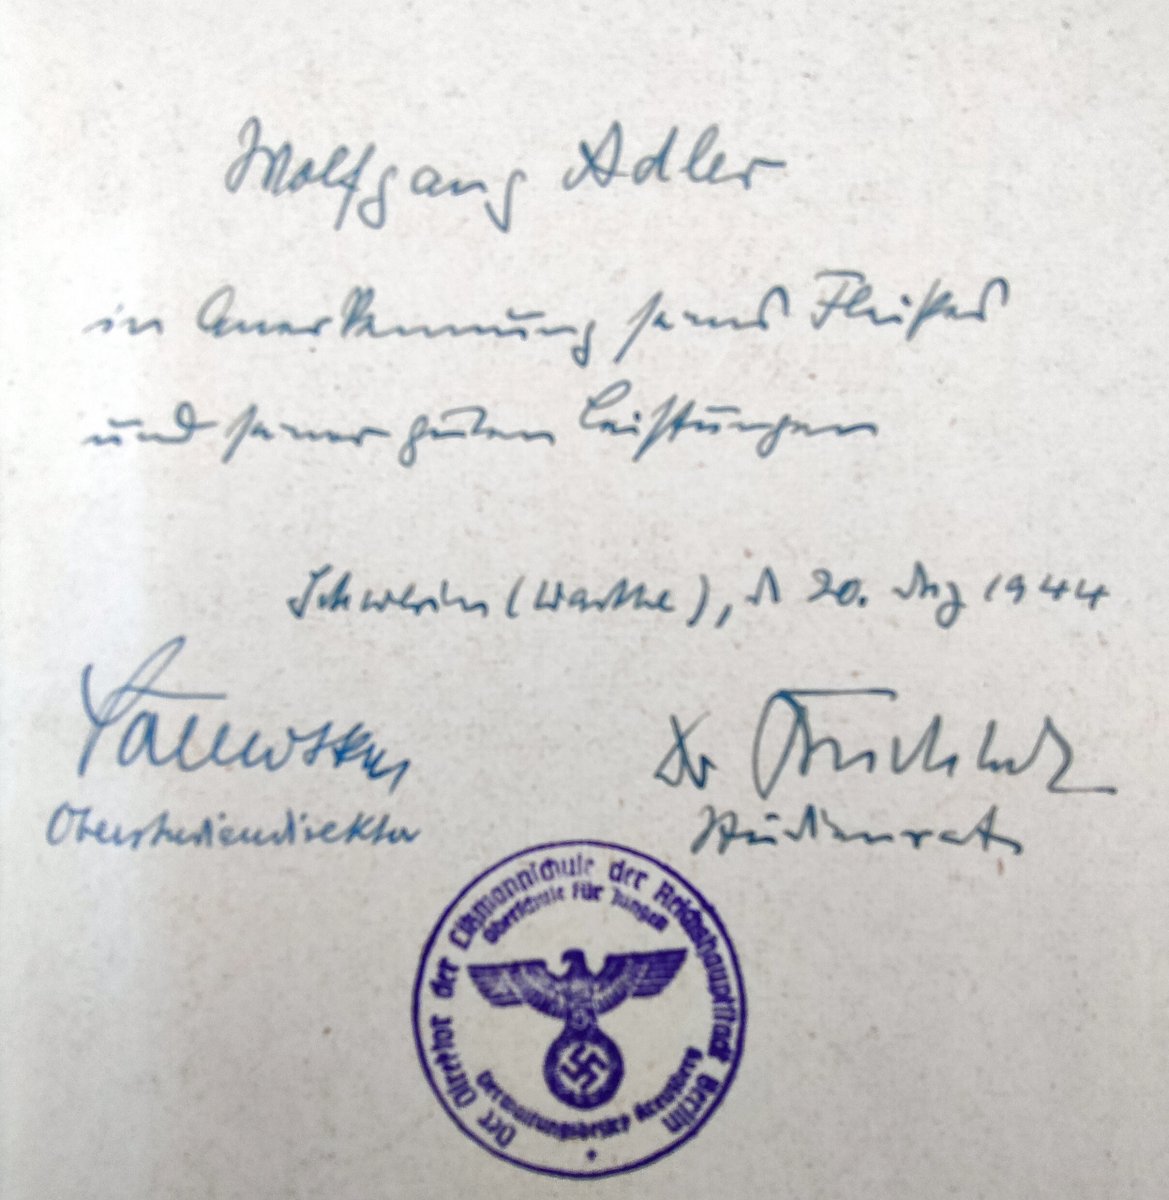 Wolfgang Adler
in Anerkennung seines Fleißes
und seiner guten Leistungen
Schwerin (Warthe), d 20. Dez 1944
Dr
Oberstudiendirektor
Studienrat
Der Direktor der Litzmannschule der Reichshauptstadt Berlin
Oberschule für Jungen
Verwaltungsbezirk Kreuzberg